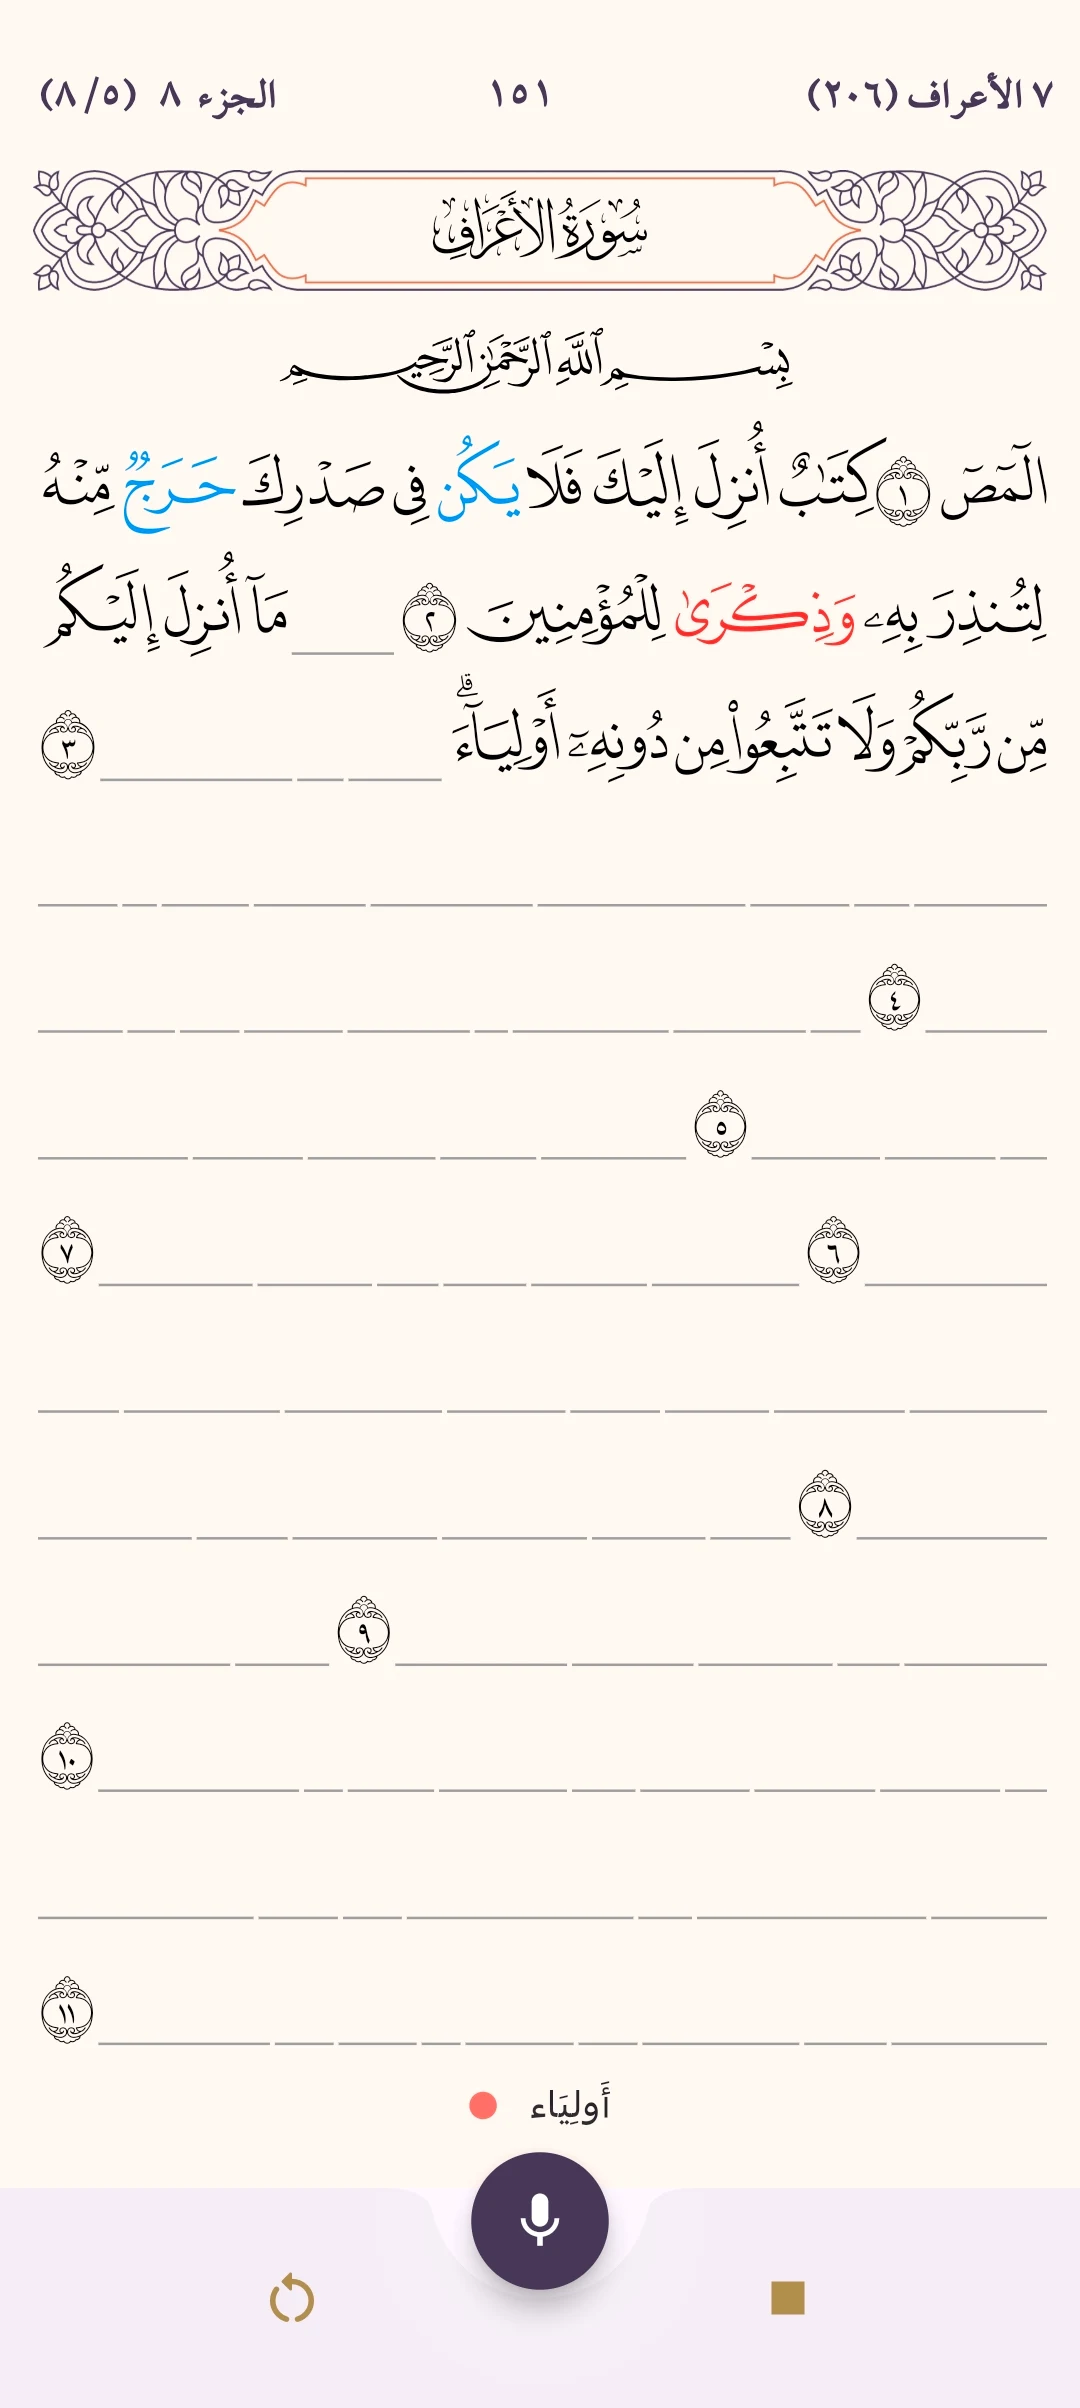 ٧ الأعراف (٢٠٦) ١٥١ الجزء ٨ (٨/٥)
سُورَةُ الأَعْرَافِ
بِسْمِ ٱللَّهِ ٱلرَّحْمَٰنِ ٱلرَّحِيمِ
الٓمٓصٓ ١ كِتَٰبٌ أُنزِلَ إِلَيْكَ فَلَا يَكُن فِى صَدْرِكَ حَرَجٌ مِّنْهُ
لِتُنذِرَ بِهِۦ وَذِكْرَىٰ لِلْمُؤْمِنِينَ ٢ مَآ أُنزِلَ إِلَيْكُم
مِّن رَّبِّكُمْ وَلَا تَتَّبِعُوا۟ مِن دُونِهِۦٓ أَوْلِيَآءَ ۗ ٣
٤
٥
٦ ٧
٨
٩
١٠
١١
أَولِيَاء